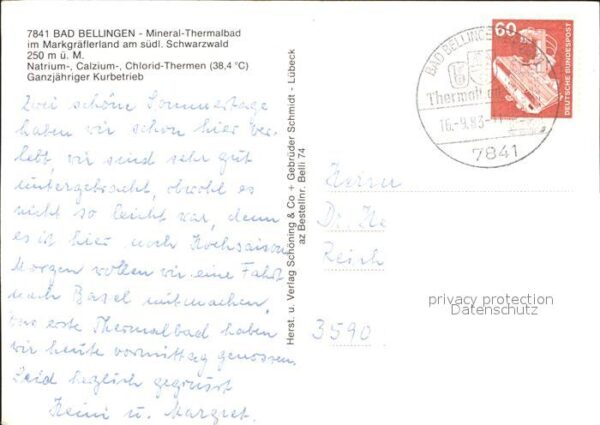 7841 BAD BELLINGEN - Mineral-Thermalbad
im Markgräflerland am südl. Schwarzwald
250 m ü. M.
Natrium-, Calzium-, Chlorid-Thermen (38,4 °C)
Ganzjähriger Kurbetrieb
Zwei schöne Sommertage
haben wir schon hier ver-
lebt, wir sind sehr gut
untergebracht, obwohl es
nicht so leicht war, denn
es ist hier noch Hochsaison
Morgen wollen wir eine Fahrt
nach Basel mitmachen.
Das erste Thermalbad haben
wir heute vormittag genossen.
Seid herzlich gegrüsst
Heini u. Margret.
Herst. u. Verlag Schöning & Co + Gebrüder Schmidt - Lübeck
az Bestellnr. Belli 74
BAD BELLINGEN
Thermal
16.-9.83-11
7841
60
DEUTSCHE BUNDESPOST
Herrn
Dr. He
Reich
3590
privacy protection
Datenschutz